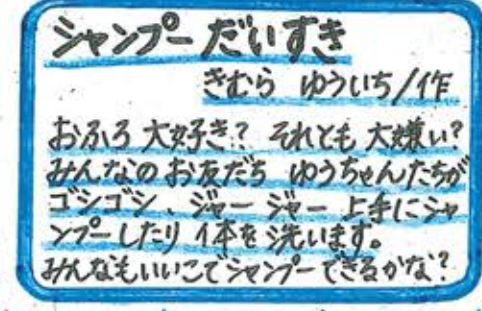 シャンプーだいすき
きむら ゆういち/作
おふろ 大好き? それとも 大嫌い?
みんなの お友だち ゆうちゃんたちが
ゴシゴシ、ジャージャー 上手にシャ
ンプーしたり 体を洗います。
みんなもいいこでシャンプーできるかな?